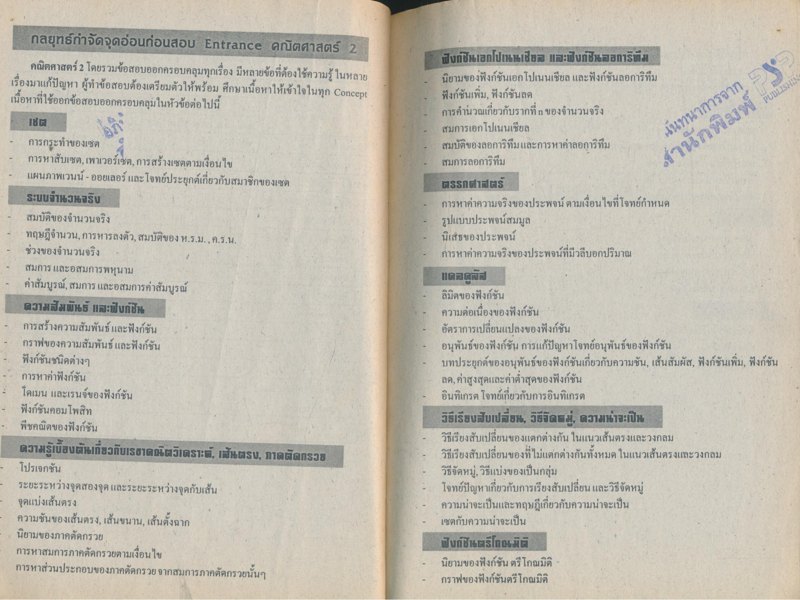 กลยุทธ์กำจัดจุดอ่อนก่อนสอบ Entrance คณิตศาสตร์ 2
คณิตศาสตร์ 2 โดยรวมข้อสอบออกครอบคลุมทุกเรื่อง มีหลายข้อที่ต้องใช้ความรู้ ในหลาย
เรื่องมาแก้ปัญหา ผู้ทำข้อสอบต้องเตรียมตัวให้พร้อม ศึกษาเนื้อหาให้เข้าใจในทุก Concept
เนื้อหาที่ใช้ออกข้อสอบออกครอบคลุมในหัวข้อต่อไปนี้
เซต
- การกระทำของเซต
- การหาสับเซต, เพาเวอร์เซต, การสร้างเซตตามเงื่อนไข
- แผนภาพเวนน์ - ออยเลอร์ และโจทย์ประยุกต์เกี่ยวกับสมาชิกของเซต
ระบบจำนวนจริง
- สมบัติของจำนวนจริง
- ทฤษฎีจำนวน, การหารลงตัว, สมบัติของ ห.ร.ม. , ค.ร.น.
- ช่วงของจำนวนจริง
- สมการ และอสมการพหุนาม
- ค่าสัมบูรณ์, สมการ และอสมการค่าสัมบูรณ์
ความสัมพันธ์ และฟังก์ชัน
- การสร้างความสัมพันธ์ และฟังก์ชัน
- กราฟของความสัมพันธ์ และฟังก์ชัน
- ฟังก์ชันชนิดต่างๆ
- การหาค่าฟังก์ชัน
- โดเมน และเรนจ์ของฟังก์ชัน
- ฟังก์ชันคอมโพสิท
- พีชคณิตของฟังก์ชัน
ความรู้เบื้องต้นเกี่ยวกับเรขาคณิตวิเคราะห์, เส้นตรง, ภาคตัดกรวย
- โปรเจกชัน
- ระยะระหว่างจุดสองจุด และระยะระหว่างจุดกับเส้น
- จุดแบ่งเส้นตรง
- ความชันของเส้นตรง, เส้นขนาน, เส้นตั้งฉาก
- นิยามของภาคตัดกรวย
- การหาสมการภาคตัดกรวยตามเงื่อนไข
- การหาส่วนประกอบของภาคตัดกรวย จากสมการภาคตัดกรวยนั้นๆ
ฟังก์ชันเอกโปเนนเชียล และฟังก์ชันลอการิทึม
- นิยามของฟังก์ชันเอกโปเนนเชียล และฟังก์ชันลอการิทึม
- ฟังก์ชันเพิ่ม, ฟังก์ชันลด
- การคำนวณเกี่ยวกับรากที่ n ของจำนวนจริง
- สมการเอกโปเนนเชียล
- สมบัติของลอการิทึม และการหาค่าลอการิทึม
- สมการลอการิทึม
ตรรกศาสตร์
- การหาค่าความจริงของประพจน์ ตามเงื่อนไขที่โจทย์กำหนด
- รูปแบบประพจน์สมมูล
- นิเสธของประพจน์
- การหาค่าความจริงของประพจน์ที่มีวลีบอกปริมาณ
แคลคูลัส
- ลิมิตของฟังก์ชัน
- ความต่อเนื่องของฟังก์ชัน
- อัตราการเปลี่ยนแปลงของฟังก์ชัน
- อนุพันธ์ของฟังก์ชัน การแก้ปัญหาโจทย์อนุพันธ์ของฟังก์ชัน
- บทประยุกต์ของอนุพันธ์ของฟังก์ชันเกี่ยวกับความชัน, เส้นสัมผัส, ฟังก์ชันเพิ่ม, ฟังก์ชัน
ลด, ค่าสูงสุดและค่าต่ำสุดของฟังก์ชัน
- อินทิเกรต โจทย์เกี่ยวกับการอินทิเกรต
วิธีเรียงสับเปลี่ยน, วิธีจัดหมู่, ความน่าจะเป็น
- วิธีเรียงสับเปลี่ยนของแตกต่างกัน ในแนวเส้นตรงและวงกลม
- วิธีเรียงสับเปลี่ยนของที่ไม่แตกต่างกันทั้งหมด ในแนวเส้นตรงและวงกลม
- วิธีจัดหมู่, วิธีแบ่งของเป็นกลุ่ม
- โจทย์ปัญหาเกี่ยวกับการเรียงสับเปลี่ยน และวิธีจัดหมู่
- ความน่าจะเป็นและทฤษฎีเกี่ยวกับความน่าจะเป็น
- เซตกับความน่าจะเป็น
ฟังก์ชันตรีโกณมิติ
- นิยามของฟังก์ชัน ตรีโกณมิติ
- กราฟของฟังก์ชัน ตรีโกณมิติ